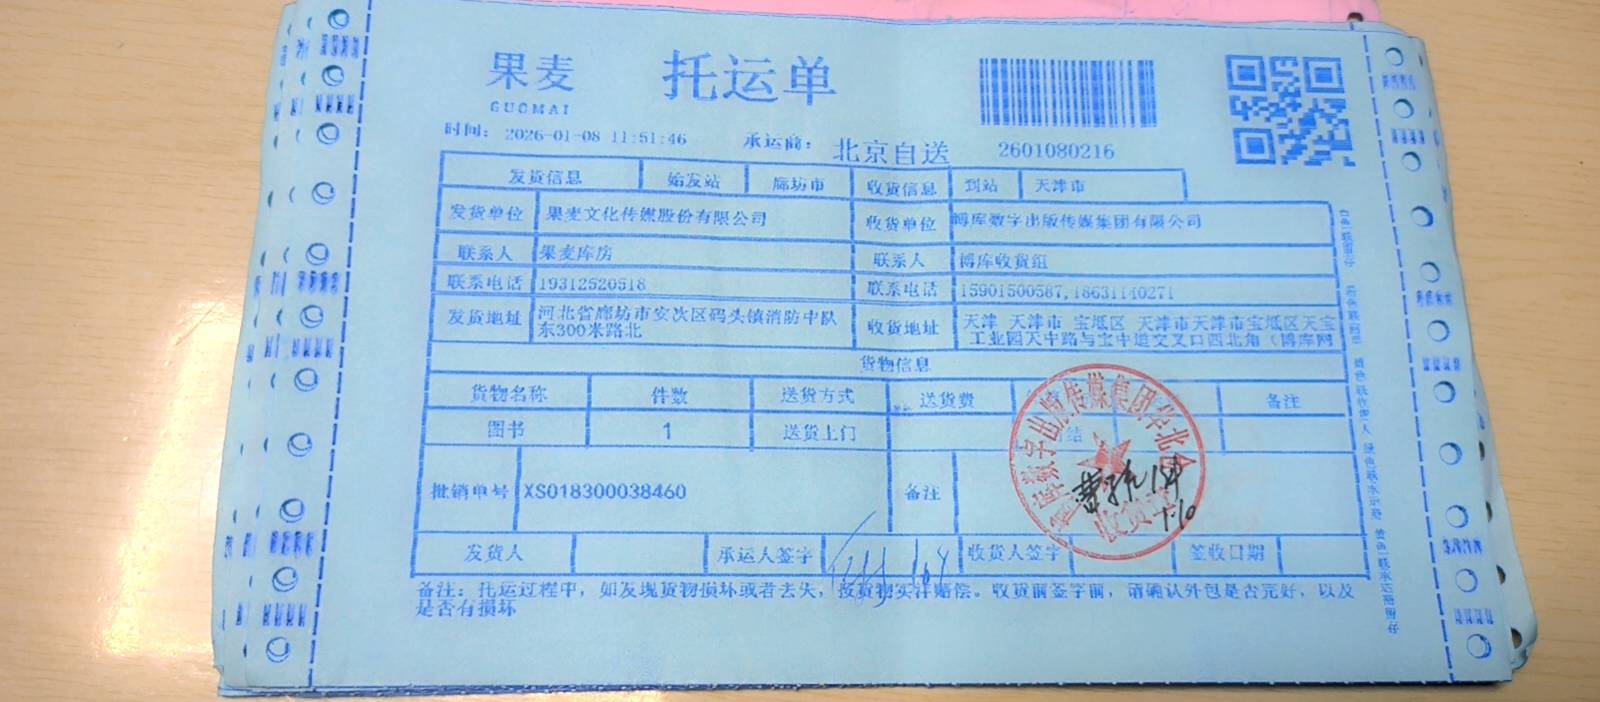 果麦
GUOMAI
托运单
时间： 2026-01-08 11:51:46
承运商： 北京自送
2601080216
发货信息 始发站 廊坊市 收货信息 到站 天津市
发货单位 果麦文化传媒股份有限公司 收货单位 博库数字出版传媒集团有限公司
联系人 果麦库房 联系人 博库收货组
联系电话 19312520518 联系电话 15901500587,18631140271
发货地址 河北省廊坊市安次区码头镇消防中队 收货地址 天津 天津市 宝坻区 天津市天津市宝坻区天宝
东300米路北 工业园天中路与宝中道交叉口西北角（博库网
货物信息
货物名称 件数 送货方式 送货费 备注
图书 1 送货上门 结
批销单号 XS018300038460 备注
数字出版传媒集团华北
收货
1.10
发货人 承运人签字 收货人签字 签收日期
备注：托运过程中，如发现货物损坏或者丢失，按货物实洋赔偿。收货前签字前，请确认外包是否完好，以及
是否有损坏